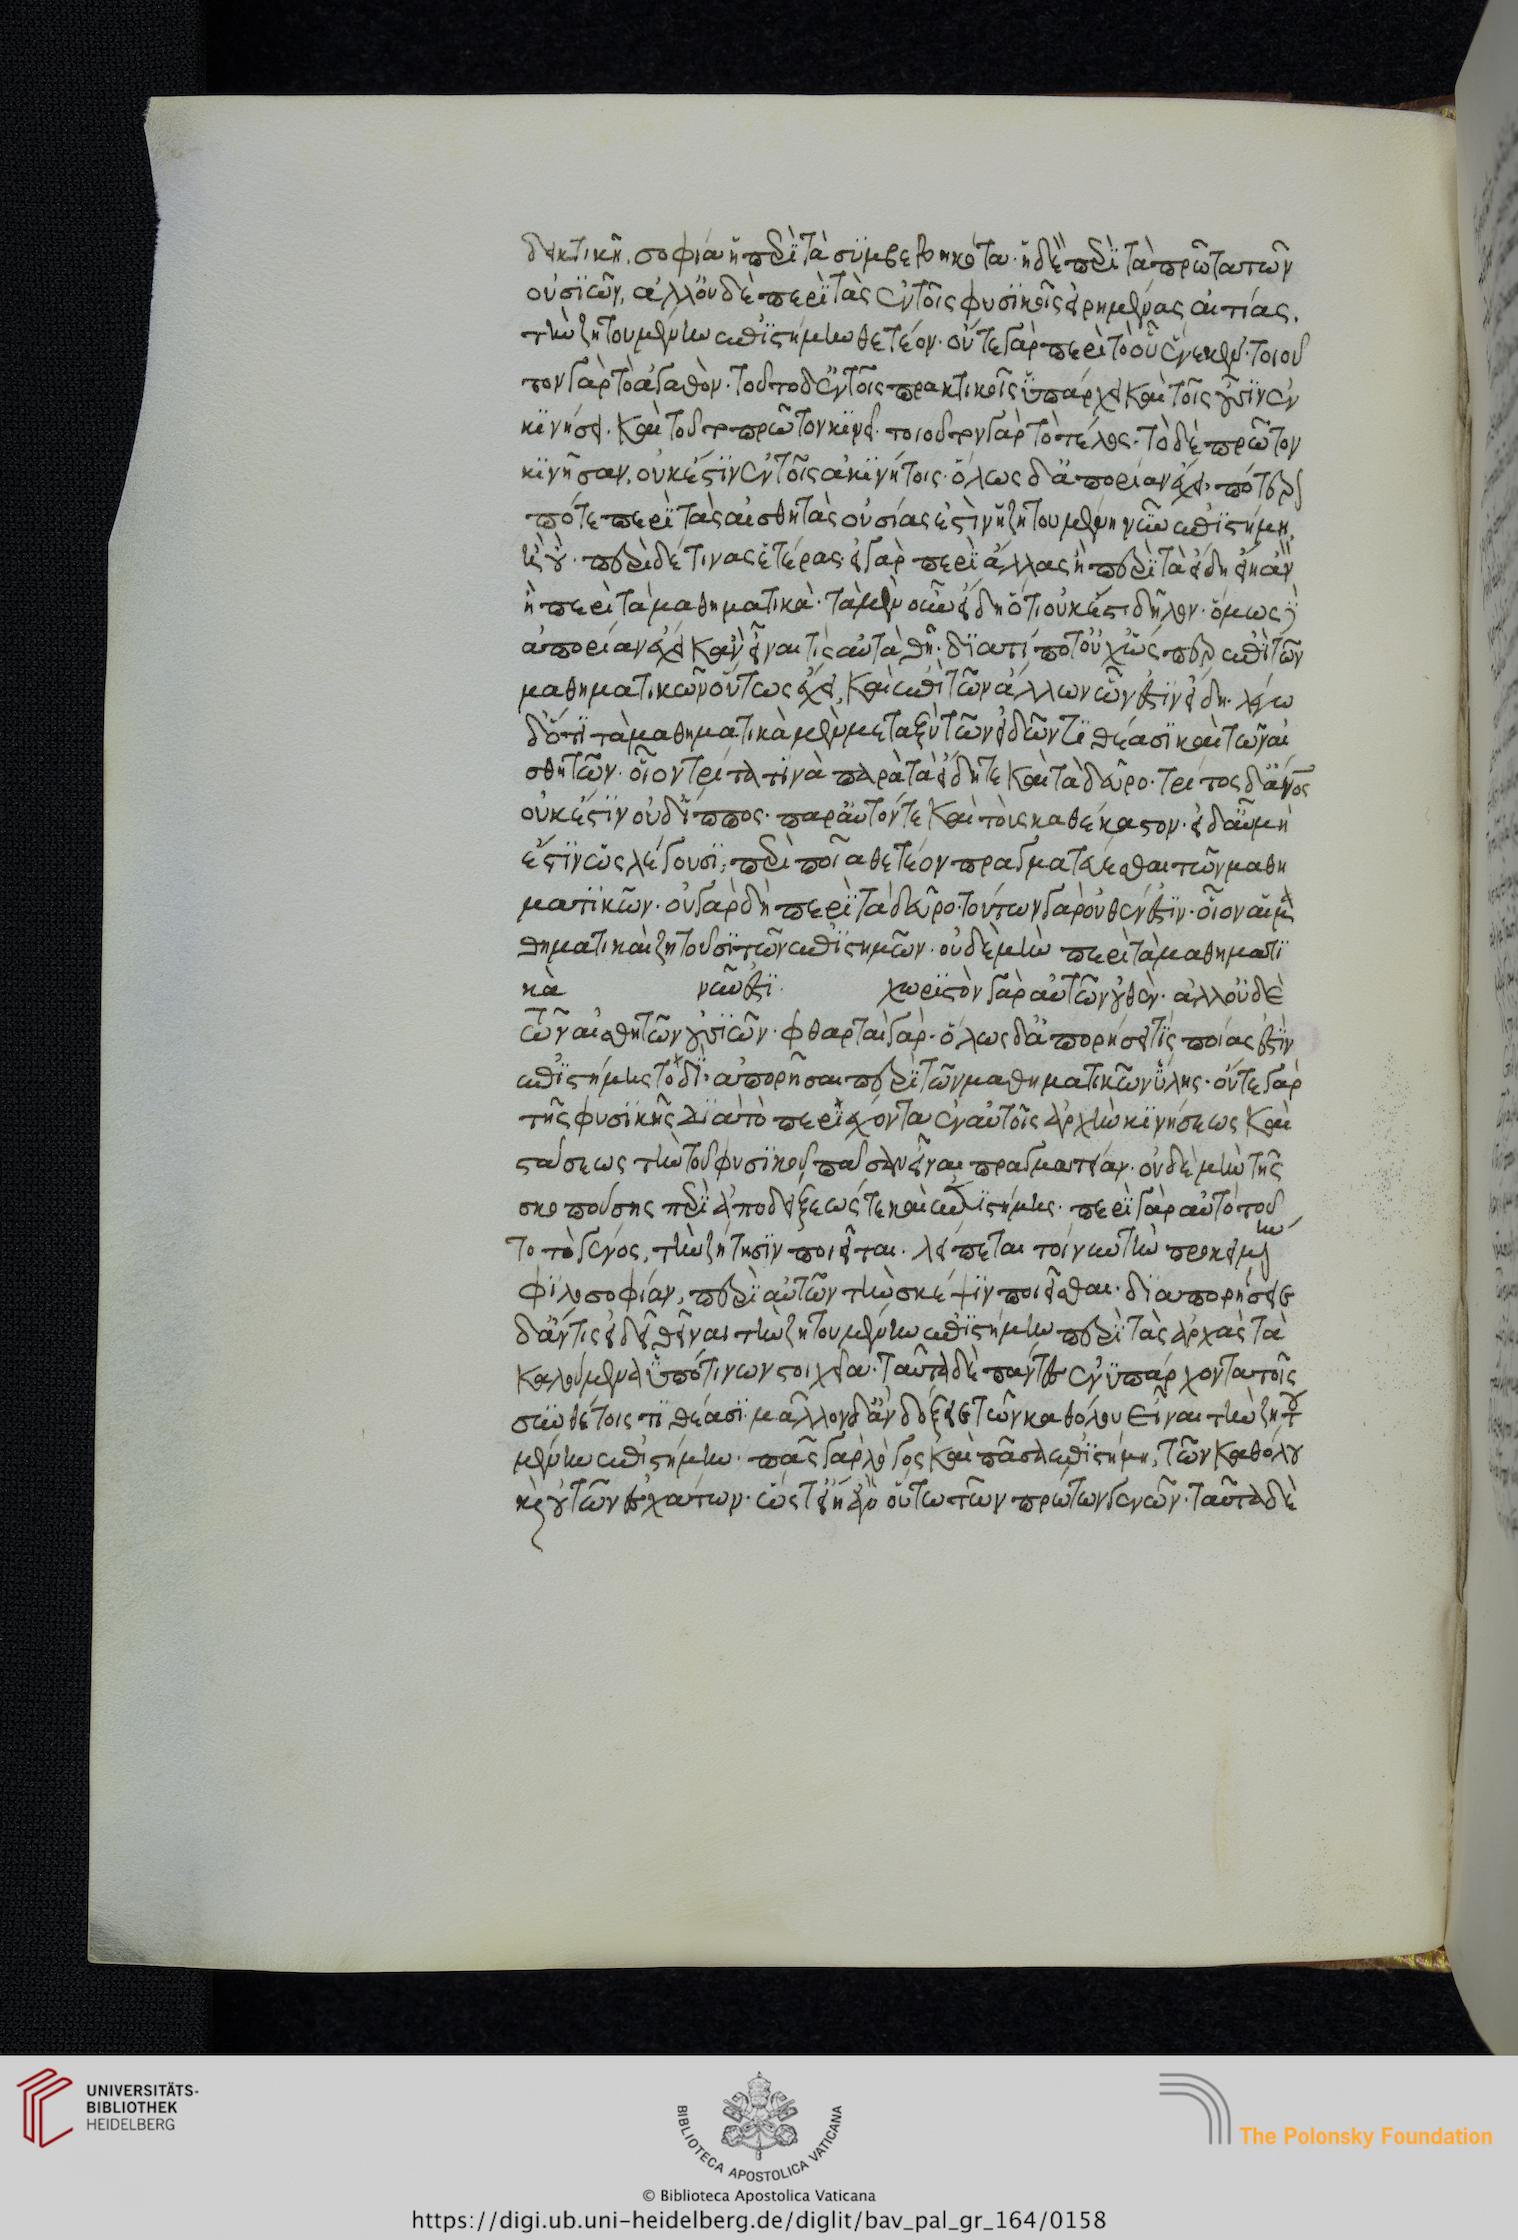 δεικτικὴ. σοφία ἡ περὶ τὰ συμβεβηκότα· ἡ δὲ περὶ τὰ πρῶτα τῶν
οὐσιῶν, ἀλλ' οὐδὲ περὶ τὰς ἐν τοῖς φυσικοῖς εἰρημένας αἰτίας.
τὴν ζητουμένην ἐπιστήμην θετέον· οὔτε γὰρ περὶ τὸ οὗ ἕνεκεν· τοιοῦ
τον γὰρ τὸ ἀγαθὸν· τοῦτο δ' ἐν τοῖς πρακτικοῖς ὑπάρχει καὶ τοῖς οὖσιν ἐν
κινήσει. καὶ τοῦτο πρῶτον κινεῖ· τοιοῦτον γὰρ τὸ τέλος· τὸ δὲ πρῶτον
κινῆσαν, οὐκ ἔστιν ἐν τοῖς ἀκινήτοις· ὅλως δ' ἀπορίαν ἔχει· πότερόν
ποτε περὶ τὰς αἰσθητὰς οὐσίας ἐστὶν ἡ ζητουμένη νῦν ἐπιστήμη,
ἢ οὔ· περὶ δέ τινας ἑτέρας· εἰ γὰρ περὶ ἄλλας ἢ περὶ τὰ εἴδη εἴη ἂν
ἢ περὶ τὰ μαθηματικὰ· τὰ μὲν οὖν εἴδη ὅτι οὐκ ἔστι δῆλον· ὅμως δὲ
ἀπορίαν ἔχει κἂν εἶναί τις αὐτὰ θῇ· διὰ τί ποτ' οὐχ ὥσπερ ἐπὶ τῶν
μαθηματικῶν οὕτως ἔχει, καὶ ἐπὶ τῶν ἄλλων ὧν ἐστὶν εἴδη· λέγω
δ' ὅτι τὰ μαθηματικὰ μὲν μεταξὺ τῶν εἰδῶν τιθέασι καὶ τῶν αἰ
σθητῶν· οἷον τρίτα τινὰ παρὰ τὰ εἴδη τε καὶ τὰ δεῦρο· τρίτος δ' ἄνος
οὐκ ἔστιν οὐδ' ἵππος· παρ' αὐτόν τε καὶ τοὺς καθέκαστον· εἰ δ' αὖ μὴ
ἔστιν ὡς λέγουσι, περὶ ποῖα θετέον πραγματεύεσθαι τὸν μαθη
ματικὸν· οὐ γὰρ δὴ περὶ τὰ δεῦρο· τούτων γὰρ οὐθέν ἐστιν· οἷον αἱ μα
θηματικαὶ ζητοῦσι τῶν ἐπιστημῶν· οὐδὲ μὴν περὶ τὰ μαθηματι
κὰ νῦν ἐστι· χωριστὸν γὰρ αὐτῶν οὐθὲν· ἀλλ' οὐδὲ
τῶν αἰσθητῶν οὐσιῶν· φθαρταὶ γὰρ· ὅλως δ' ἀπορήσειέ τις ποίας ἐστὶν
ἐπιστήμης τὸ διαπορῆσαι περὶ τῶν μαθηματικῶν ὕλης· οὔτε γὰρ
τῆς φυσικῆς διὰ τὸ περὶ τὰ ἔχοντα ἐν αὐτοῖς ἀρχὴν κινήσεως καὶ
στάσεως τὴν τοῦ φυσικοῦ πᾶσαν εἶναι πραγματείαν· οὐδὲ μὴν τῆς
σκοπούσης περὶ ἀποδείξεώς τε καὶ ἐπιστήμης· περὶ γὰρ αὐτὸ τοῦ
το τὸ γένος, τὴν ζήτησιν ποιεῖται. λείπεται τοίνυν τὴν προκειμένην
φιλοσοφίαν, περὶ αὐτῶν τὴν σκέψιν ποιεῖσθαι· διαπορήσειε
δ' ἄν τις εἰ δεῖ θεῖναι τὴν ζητουμένην ἐπιστήμην περὶ τὰς ἀρχὰς τὰ
καλούμενα ὑπό τινων στοιχεῖα· ταῦτα δὲ πάντες ἐνυπάρχοντα τοῖς
συνθέτοις τιθέασι· μᾶλλον δ' ἂν δόξειε τῶν καθόλου εἶναι τὴν ζητου
μένην ἐπιστήμην· πᾶς γὰρ λόγος καὶ πᾶσα ἐπιστήμη, τῶν καθόλου
καὶ οὐ τῶν ἐσχάτων· ὥστ' εἴη ἂν οὕτω τῶν πρώτων γενῶν· ταῦτα δὲ
UNIVERSITÄTS-
BIBLIOTHEK
HEIDELBERG
BIBLIOTECA APOSTOLICA VATICANA
The Polonsky Foundation
© Biblioteca Apostolica Vaticana
https://digi.ub.uni-heidelberg.de/diglit/bav_pal_gr_164/0158